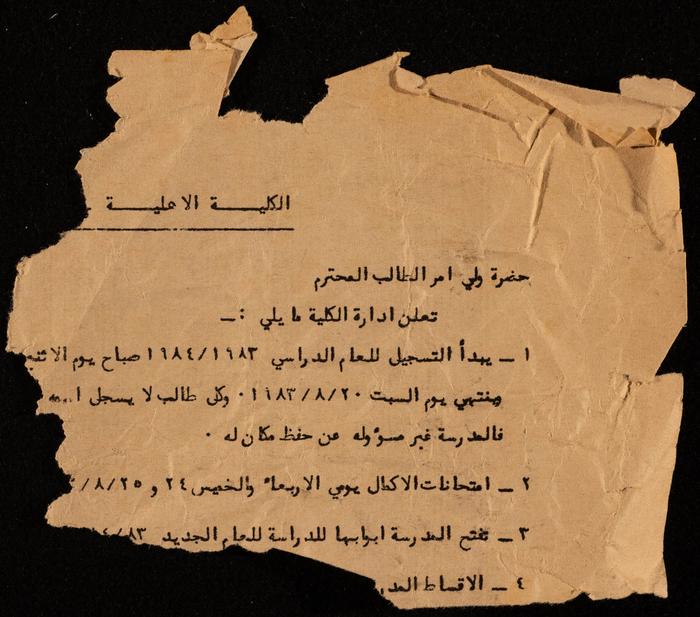 الكليـــة الاهليـــة
حضرة ولي امر الطالب المحترم
تعلن ادارة الكلية ما يلي :ـ
١ ـ يبدأ التسجيل للعام الدراسي ١٩٨٤/١٩٨٣ صباح يوم
وينتهي يوم السبت ١٩٨٣/٨/٢٠ ٠ وكل طالب لا يسجل
فالمدرسة غير مسؤوله عن حفظ مكان له ٠
٢ ـ امتحانات الاكمال يومي الاربعاء والخميس ٢٤ و ٨/٢٥/
٣ ـ تفتح المدرسة ابوابها للدراسة للعام الجديد ٨٤/٨٣
٤ ـ الاقساط